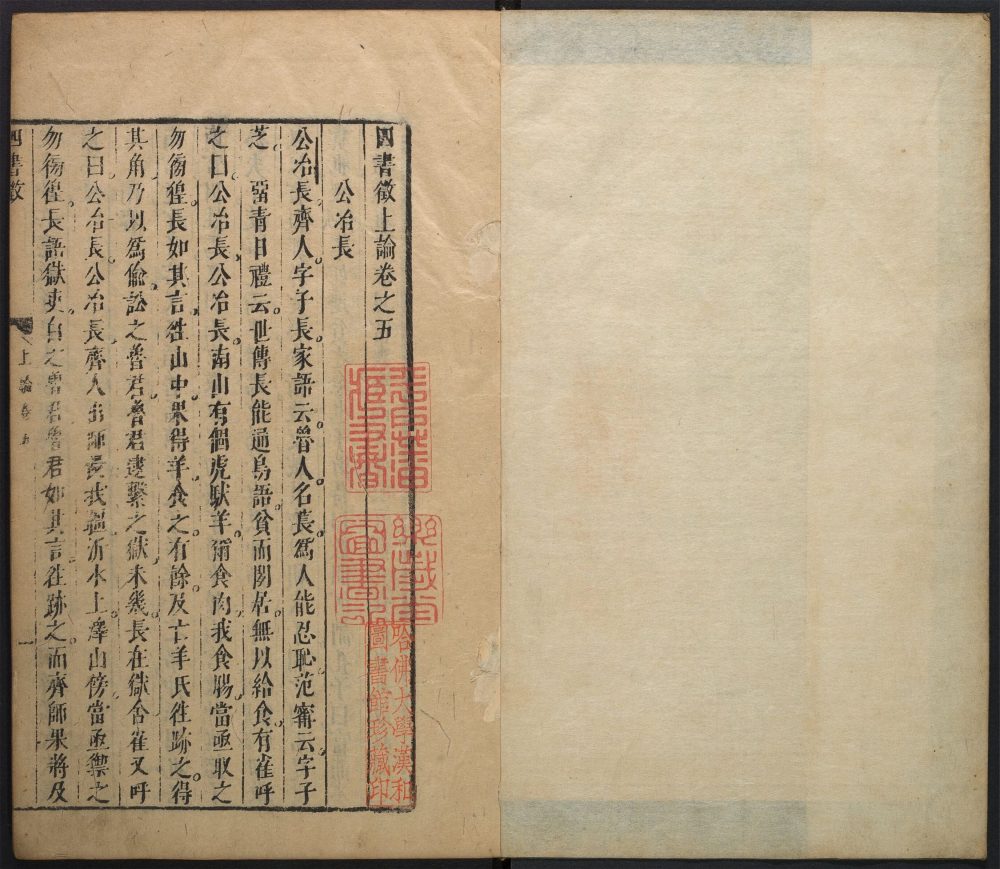 四書徵上論卷之五
公冶長
公冶長齊人字子長家語云魯人名萇為人能忍恥范甯云字子
芝 留青日禮云世傳長能通鳥語貧而閑居無以給食有雀呼
之曰公冶長公冶長南山有個虎馱羊爾食肉我食腸當亟取之
勿徬徨長如其言往山中果得羊食之有餘及亡羊氏往跡之得
其角乃以為偷訟之魯君魯君逮繫之獄未幾長在獄舍雀又呼
之曰公冶長公冶長齊人出師侵我疆沂水上嶧山傍當亟禦之
勿徬徨長語獄吏白之魯君魯君如其言往跡之而齊師果將及
四書徵
上論卷五
一
樂歲堂
圖書記
哈佛大學漢和
圖書館珍藏印